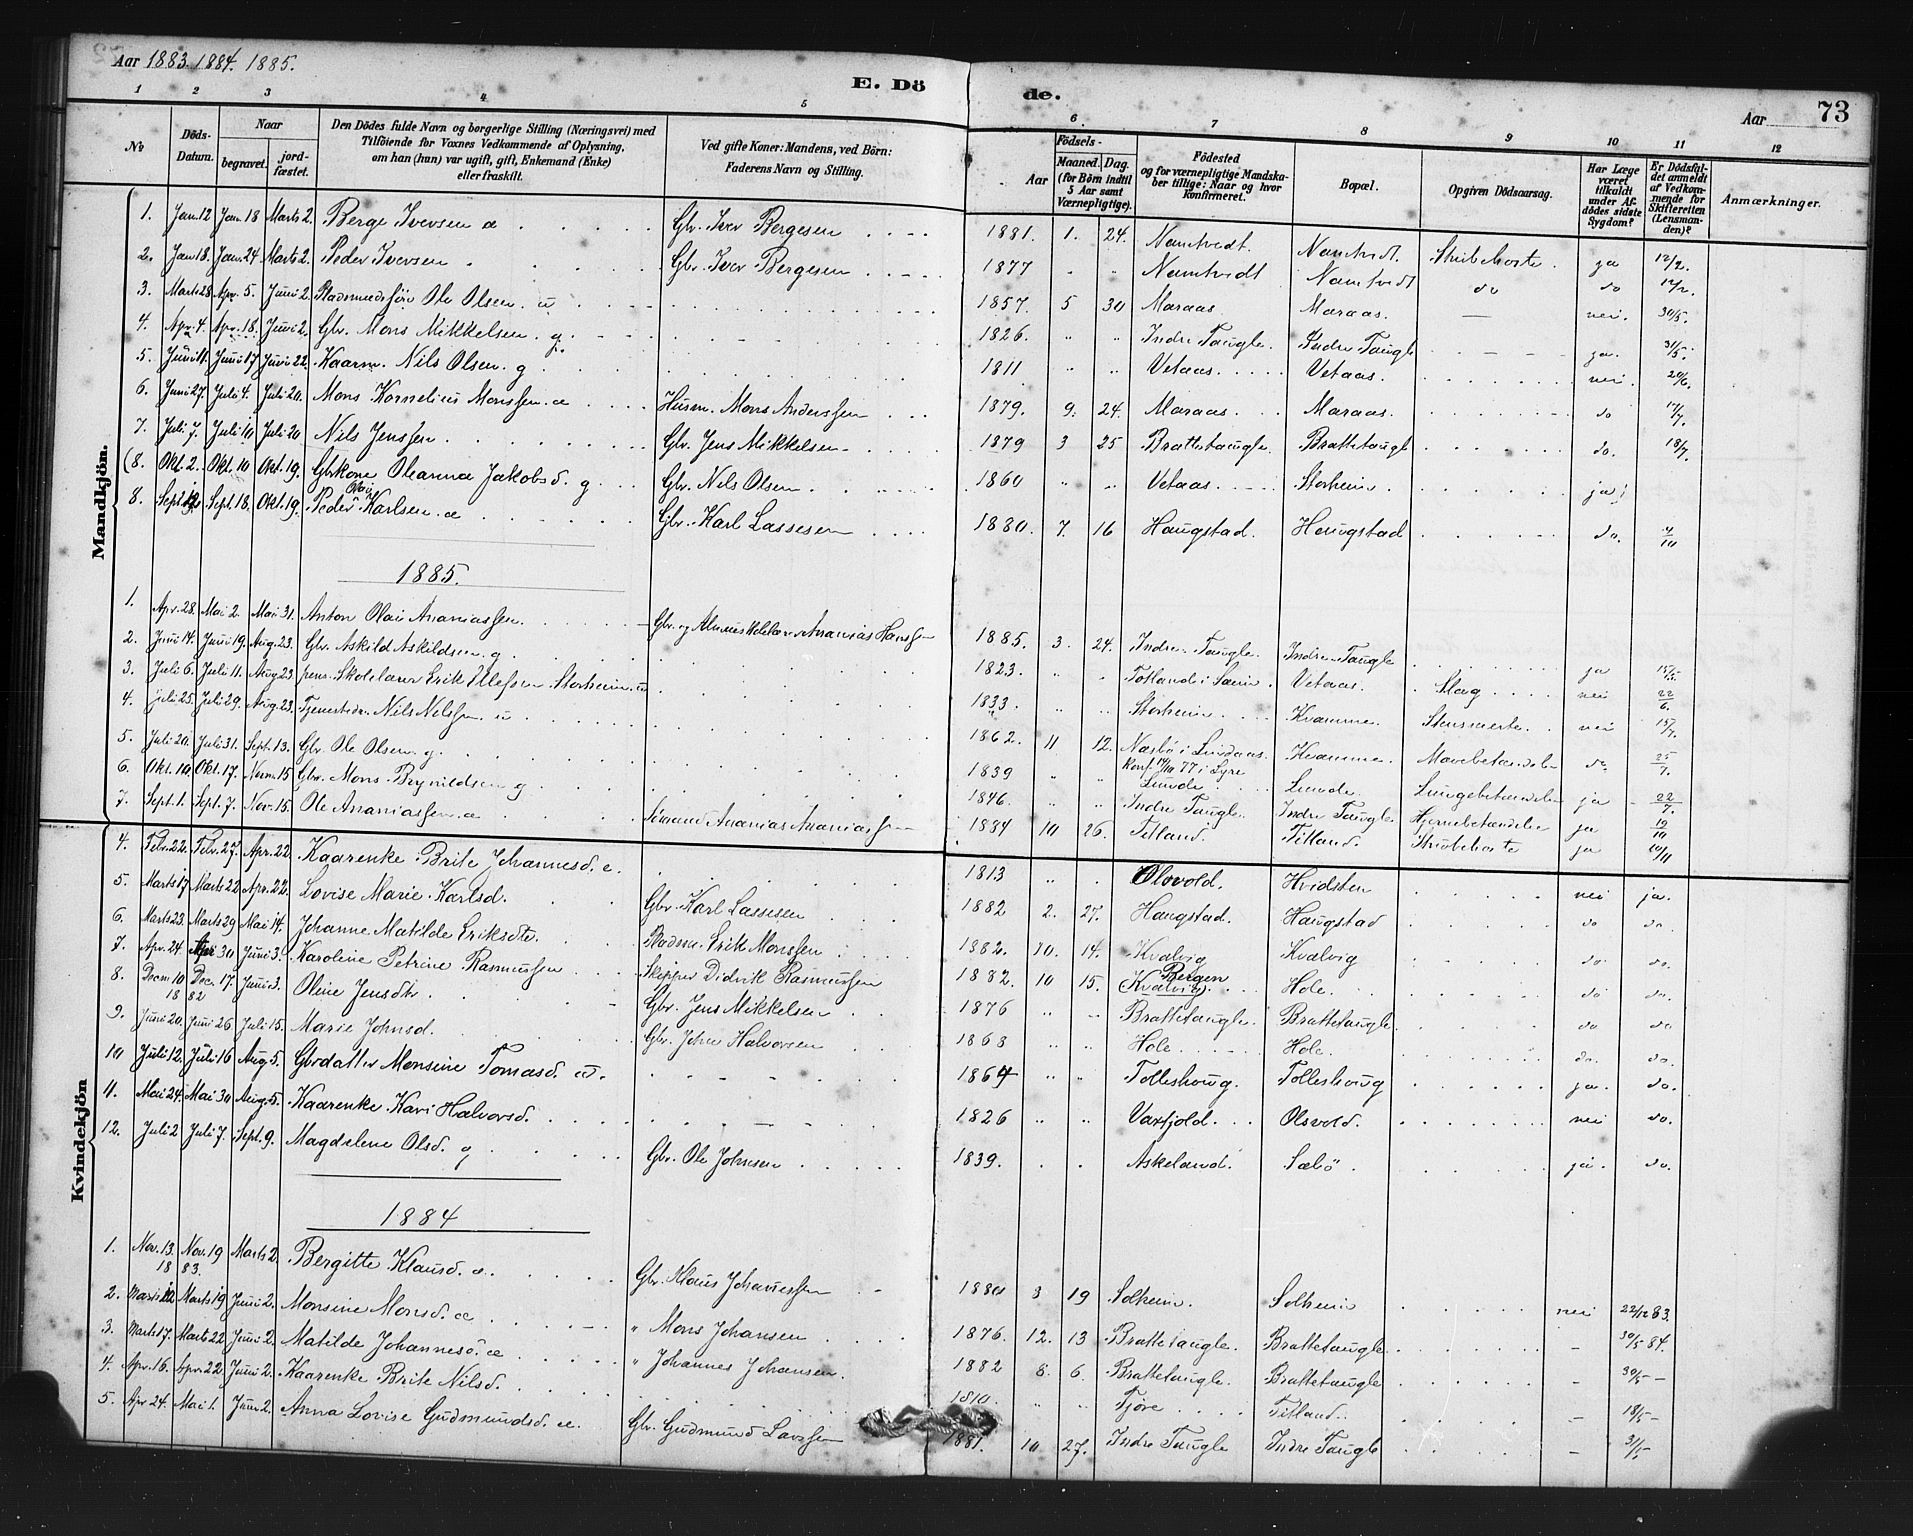 Aar 1883. 1884. 1885.
E. Dö de.
Aar 73
1 2 3 4 5 6 7 8 9 10 11 12
No
Döds-Datum.
Naar
begravet.
jord-fæstet.
Den Dödes fulde Navn og borgerlige Stilling (Næringsvei) med
Tilföiende for Voxnes Vedkommende af Oplysning,
om han (hun) var ugift, gift, Enkemand (Enke)
eller fraskilt.
Ved gifte Koner: Mandens, ved Börn:
Faderens Navn og Stilling.
Födsels-
Aar Maaned. Dag.
(for Börn indtil
5 Aar samt
Værnepligtige).
Födested
og for værnepligtige Mandska-
ber tillige: Naar og hvor
konfirmeret.
Bopæl.
Opgiven Dödsaarsag.
Har Læge
været
tilkaldt
under Af-
dödes sidste
Sygdom?
Er Dödsfal-
det anmeldt
af Vedkom-
mende for
Skifteretten
(Lensman-
den)?
Anmærkninger.
Mandkjön.
1. Jan. 12 Jan. 18 Marts 2. Berge Iversen æ Gbr. Iver Bergesen 1881. 1. 24. Namtvedt. Namtvedt. Strubehoste. ja 12/2.
2. Jan 18. Jan. 24 Marts 2. Peder Iversen Gbr. Iver Bergesen 1877 " " Namtvedt Namtvedt do do 12/2.
3. Marts 28 Apr. 5. Juni 2. Ole Olsen. u 1857 5 30 Maraas. Maraas. — nei. 30/5.
4. Apr. 4. Apr. 18. Juni 2. Gbr. Mons Mikkelsen. g. 1826. " " Indre Taugle. Indre Taugle ja. 31/5.
5. Juni 11. Juni 17 Juni 22. Kaarm. Nils Olsen. g 1811 " " Vetaas. Vetaas. nei. 20/6.
6. Juni 27. Juli 4. Juli 20. Mons Kornelius Monssen. æ Husm. Mons Anderssen 1879. 9. 24. Maraas. Maraas. do 17/7.
7. Juli 7. Juli 10 Juli 20 Nils Jenssen. Gbr. Jens Mikkelsen 1879 3 25 Brattetaugle. Brattetaugle do. 18/7.
(8. Okt. 2. Okt. 10 Okt. 19. Gbrkone Oleanna Jakobsd. g Gbr. Nils Olsen. 1860 " " Vetaas. Storheim. ja)
8. Sept. Sept. 18. Okt. 19. Peder Olai Karlsen. æ Gbr. Karl Lassesen 1880. 7. 16 Haugstad. Haugstad do. 4/10
1885.
1. Apr. 28. Mai 2. Mai 31. Anton Olai Ananiassen. Gbr. og Ananias Hanssen 1885. 3. 24. Indre Taugle. Indre Taugle ja 15/5.
2. Juni 14. Juni 19. Aug. 23. Gbr. Askild Askildsen. g 1823. " " Totland i Vetaas. Slag nei 22/6.
3. Juli 6. Juli 11. Aug 23. pens. Skolelærer Erik Storheim. u 1833. " " Storheim. Kvamme. nei 15/7.
4. Juli 25. Juli 29. Aug. 23. Tjenestedr. Nils Nilssen. u 1862. 11 12. Næsbø i Lindaas. konf. 77 i Lyre Kvamme. Mavebetændelse do. 25/7.
5. Juli 20. Juli 31. Sept. 13. Gbr. Ole Olsen. g. 1839 " " Lunde. Lunde. Lungebetændelse ja 22/7.
6. Okt. 10 Okt. 17. Novm. 15 Gbr. Mons Brynildsen. g 1846. " " Indre Taugle. Indre Taugle. Hjernebetændelse ja 19/10
7. Sept. 1. Sept. 7. Nov. 15. Ole Ananiassen. æ Sømand Ananias Ananiassen 1884 10 26. Titland. Titland. Strubehoste ja 10/11
Kvindekjön
4. Febr. 22. Febr. 27. Apr. 22. Kaarenke Brite Johannesd. e. 1813 " Olsvold. Hvidsten nei ja.
5. Marts 17 Marts 22 Apr. 22. Lovise Marie Karlsd. Gbr. Karl Lassesen 1882. 2. 27. Haugstad. Haugstad do do.
6. Marts 23. Marts 29 Mai 14. Johanne Matilde Eriksdtr. Erik Monssen 1882. 10. 14. Kvalvig Kvalvig do. do.
7. Apr. 24. Apr 30 Juni 3. Karoline Petrine Rasmussen Skipper Didrik Rasmussen 1882. 10 15. Bergen (Kvalvig). Hole. do do.
8. Decm 10 Decr. 17. 1882 Juni 3. Oline Jensdtr. Gbr. Jens Mikkelsen 1876 " " Brattetaugle. Brattetaugle do do
9. Juni 20. Juni 26 Juli 15. Marie Johnsd. Gbr. John Halvorsen 1868 " " Hole. Hole. do. do.
10 Juli 12. Juli 16 Aug. 5. Gbrdatter Monsine Tomasd. u. 1864 " " Tolleshoug. Tolleshoug ja. do.
11. Mai 24. Mai 30 Aug. 5. Kaarenke Kari Halvorsd. 1826 " " Varfjold. Olsvold. nei do.
12. Juli 2 Juli 7. Sept. 9. Magdalene Olsd. g Gbr. Ole Johnsen 1839. Askeland. Sæbö. ja. do.
1884
1. Nov. 13. Nov. 19 1883. Marts 2. Bergitte Klausd. æ. Gbr. Klaus Johannessen 1880 3 19 Solheim. Solheim nei 22/12 83.
2. Marts Marts 19 Juni 2. Monsine Monsd. æ " Mons Johansen 1876. 12. 13 Brattetaugle. Brattetaugle. — 30/5 84.
3. Marts 17. Marts 22 Juni 2. Matilde Johannesd. æ " Johannes Johansen. 1882 8. 6. Brattetaugle. Brattetaugle — 30/5 —
4. Apr. 16. Apr. 22 Juni 2. Kaarenke Brite Nilsd. 1810. " " Tjöre Titland. — 18/5 —
5. Apr 24. Mai 1. Juni 2. Anna Lovise Gudmundsd. æ. Gbr. Gudmund Larssen 1881. 10 27. Indre Taugle Indre Taugle — 31/5